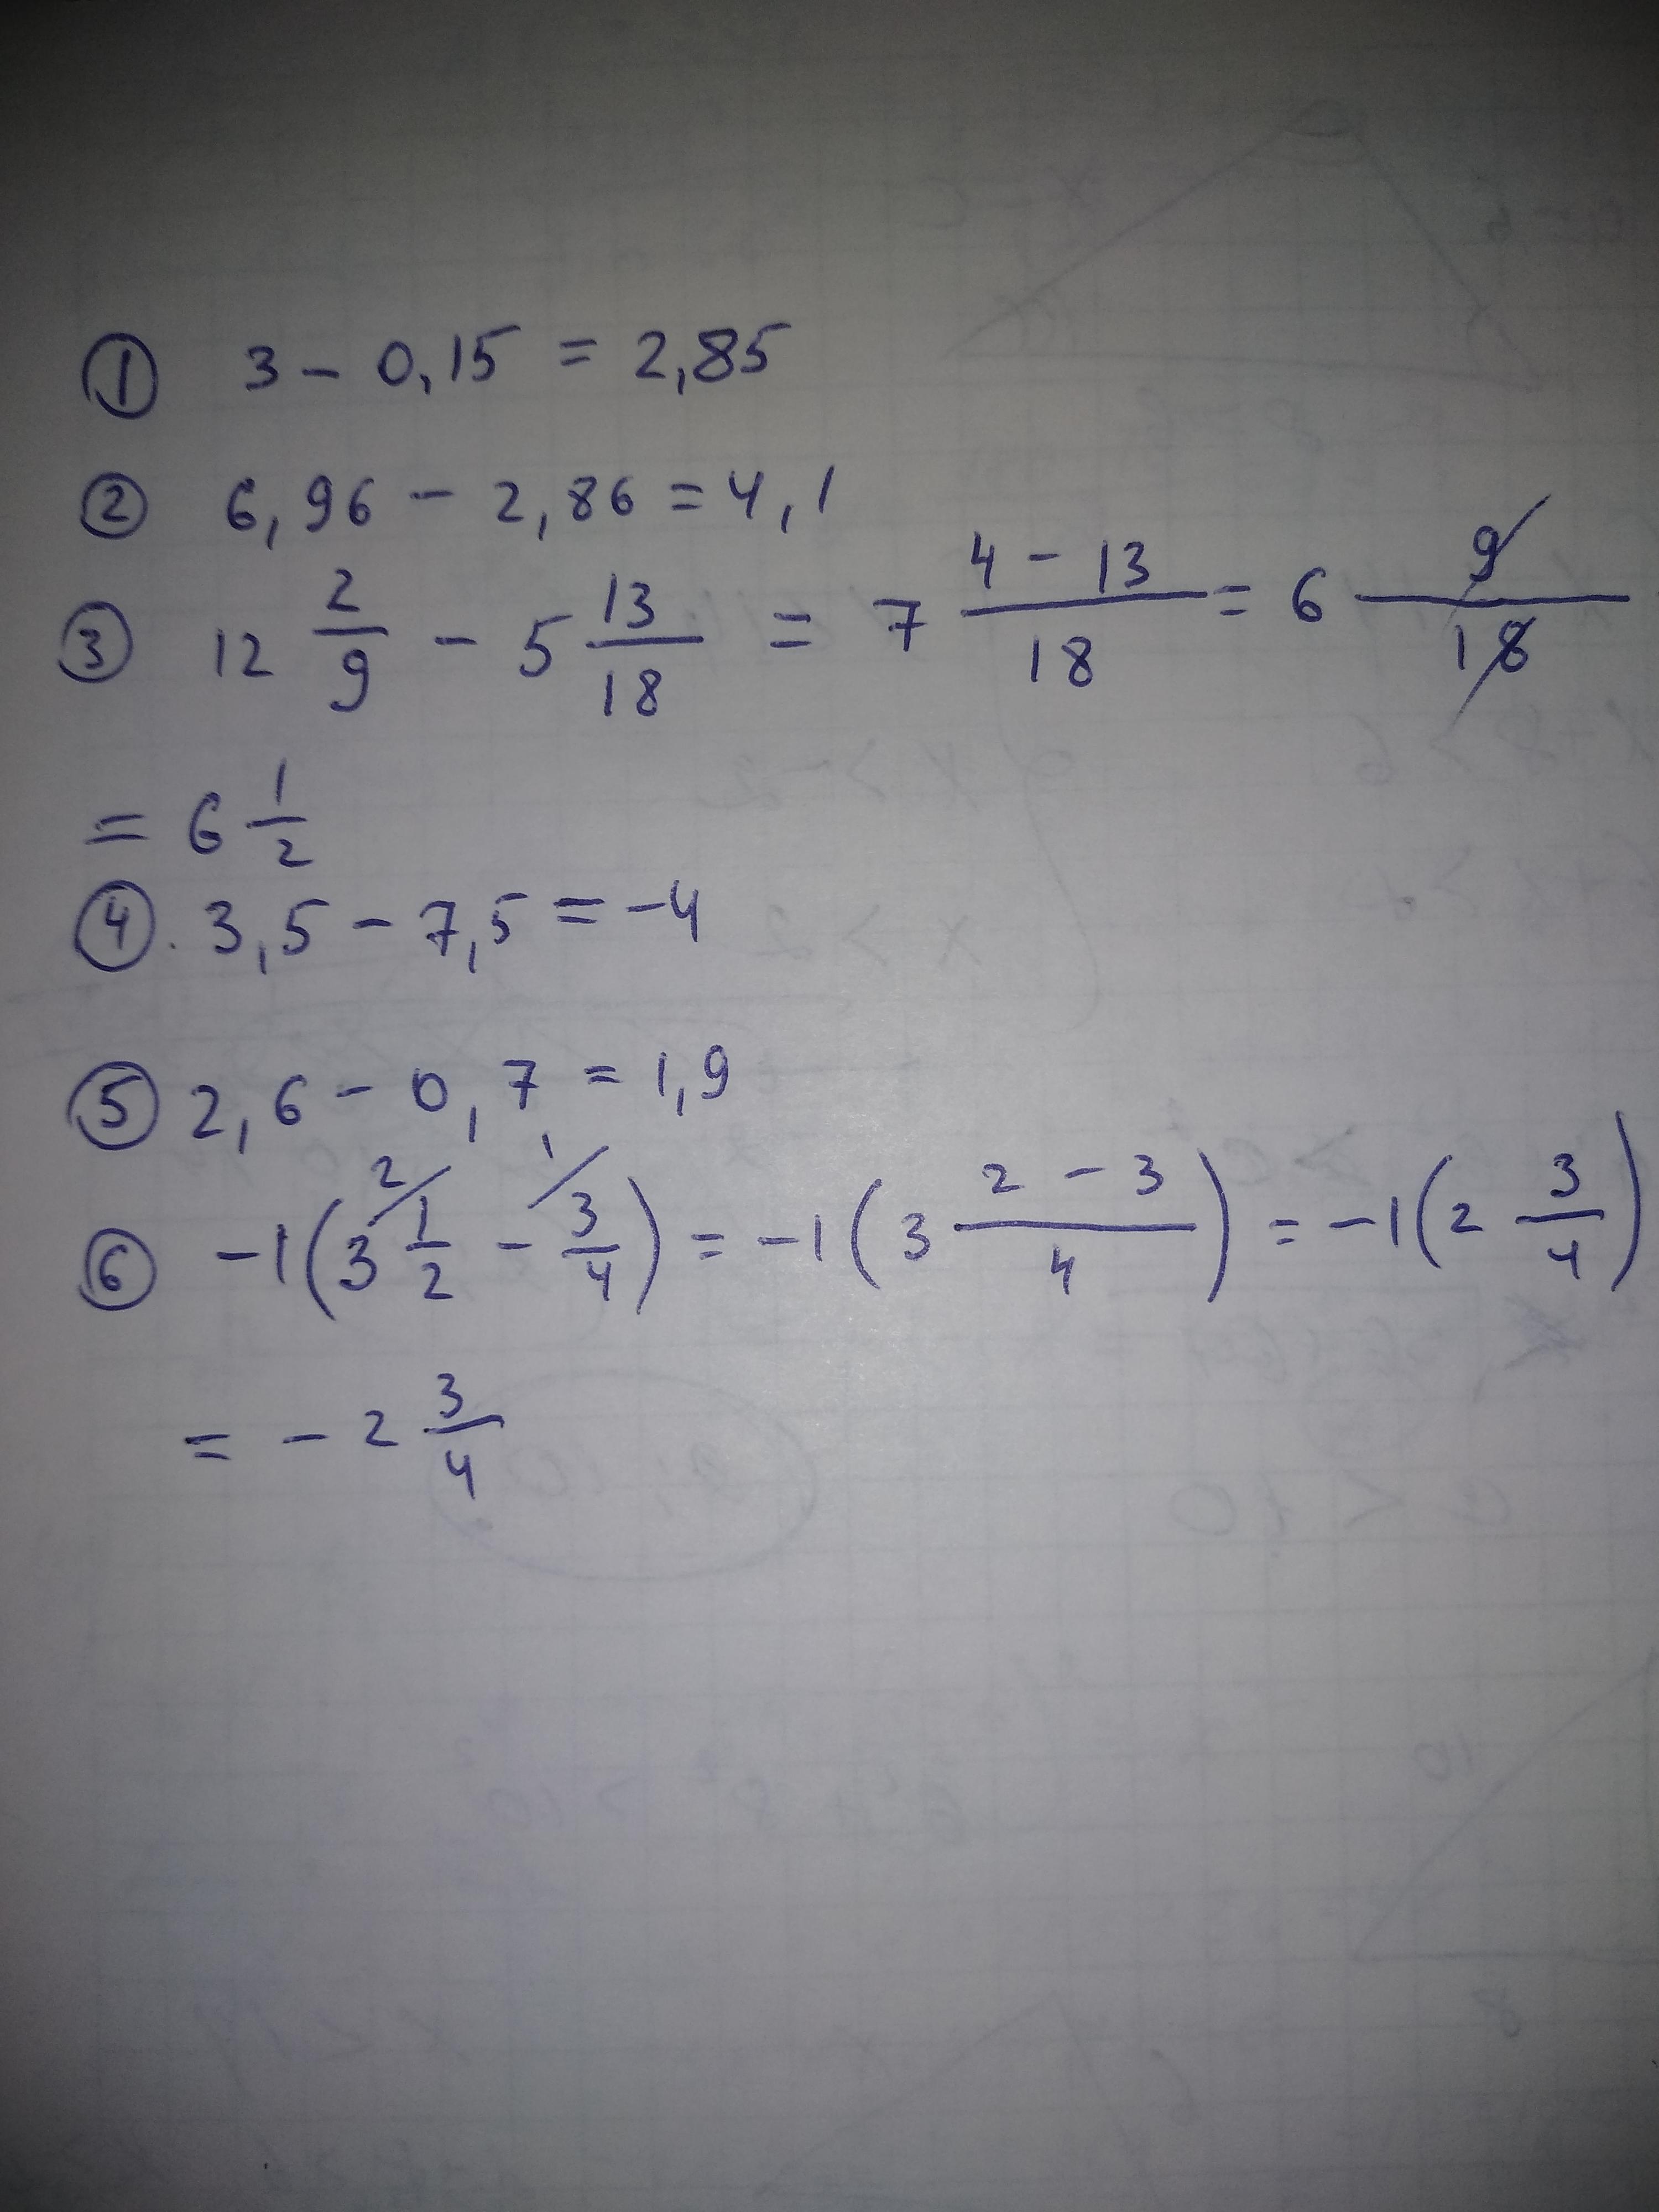 ① 3 - 0,15 = 2,85
② 6,96 - 2,86 = 4,1
③ 12 2/9 - 5 13/18 = 7 (4 - 13)/18 = 6 9/18
= 6 1/2
④. 3,5 - 7,5 = -4
⑤ 2,6 - 0,7 = 1,9
⑥ -1(3 1/2 - 3/4) = -1(3 (2 - 3)/4) = -1(2 3/4)
= - 2 3/4